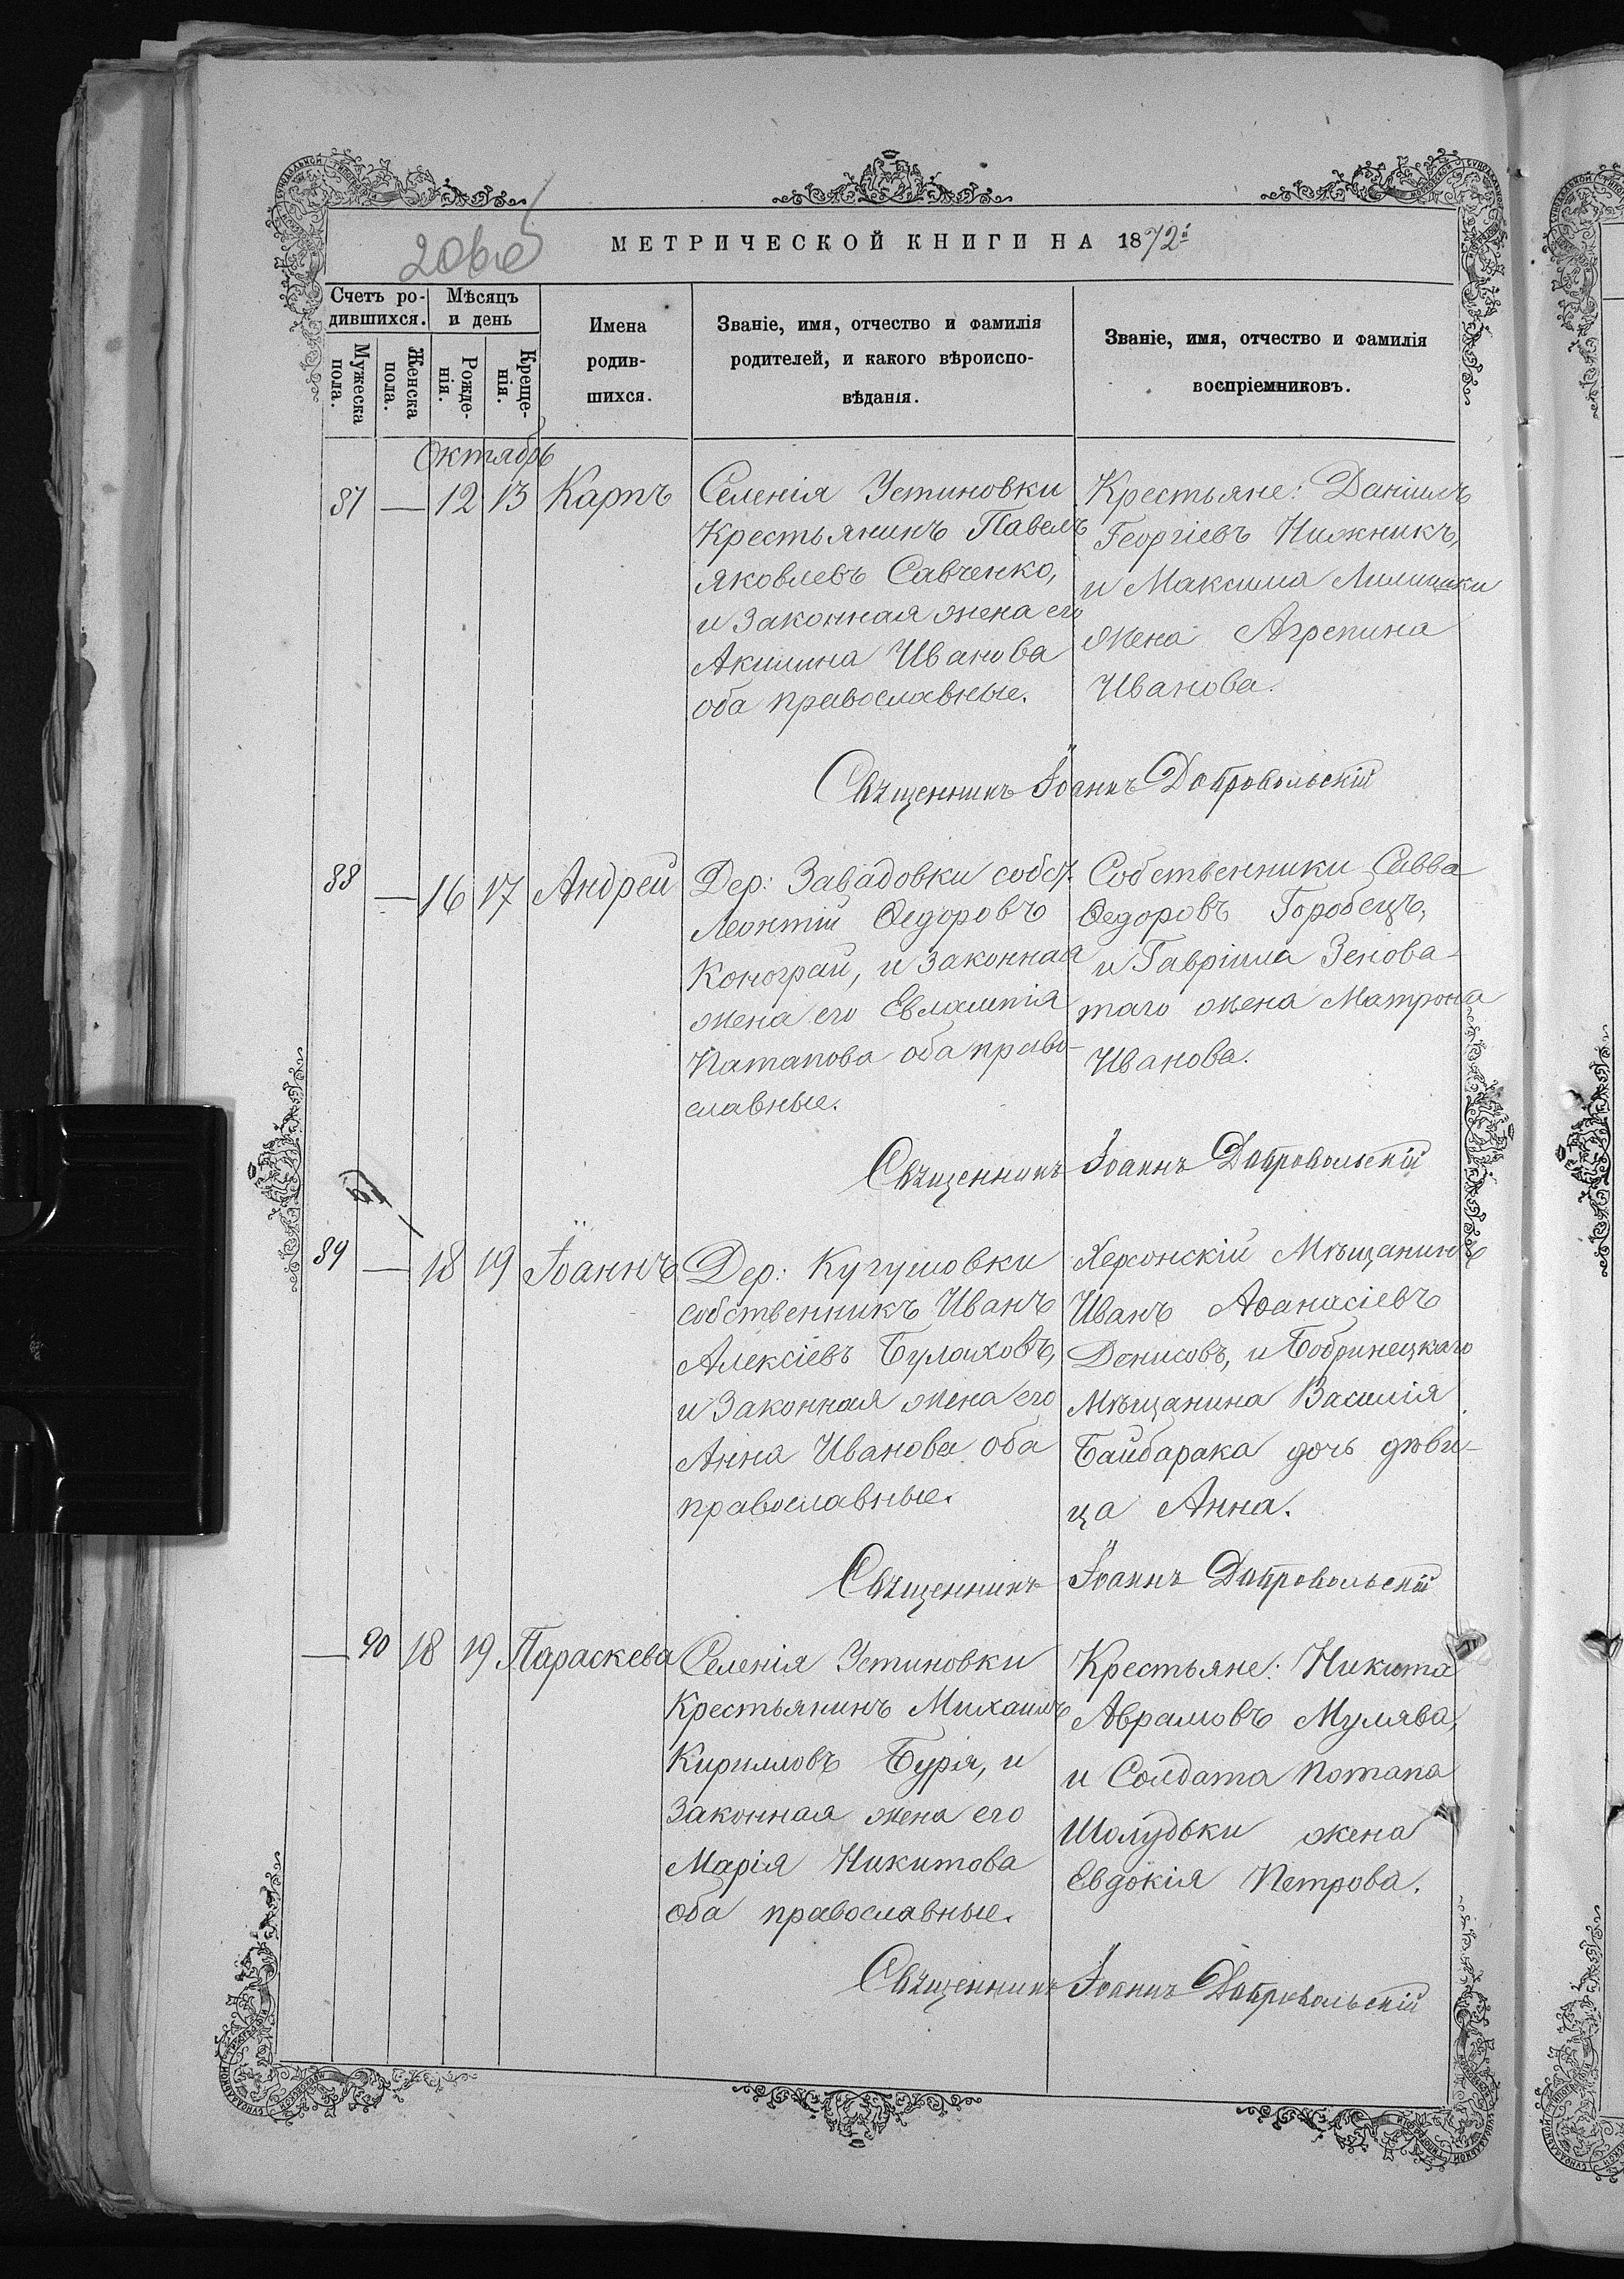 МЕТРИЧЕСКОЙ КНИГИ НА 1872й
206
Счетъ ро-
дившихся.
Мѣсяцъ
и день
Мужеска
пола.
Женска
пола.
Рожде-
нія.
Креще-
нія.
Имена
родив-
шихся.
Званіе, имя, отчество и фамилія
родителей, и какого вѣроиспо-
вѣданія.
Званіе, имя, отчество и фамилія
воспріемниковъ.
Октябрь
87 — 12 13 Карпъ
Селенія Устиновки
Крестьянинъ Павелъ
Яковлевъ Савченко,
и законная жена его
Акилина Иванова
оба православные.
Крестьяне: Даніилъ
Георгіевъ Нижникъ,
и Максима
жена Агрепина
Иванова.
Священникъ Іоаннъ Добровольскій
88 — 16 17 Андрей
Дер: Завадовки собст.
Леонтій Ѳедоровъ
Конограй, и законная
жена его Евлампія
Патапова оба право-
славные.
Собственники Савва
Ѳедоровъ Горобецъ,
и Гавріила Зенова-
таго жена Матрона
Иванова.
Священникъ Іоаннъ Добровольскій
89 — 18 19 Іоаннъ
Дер: Кугушовки
собственникъ Иванъ
Алексіевъ Булаховъ,
и законная жена его
Анна Иванова оба
православные.
Херсонскій Мѣщанинъ
Иванъ Аѳанасіевъ
Денисовъ, и Бобринецкаго
Мѣщанина Василія
Байбарака дочь дѣви-
ца Анна.
Священникъ Іоаннъ Добровольскій
— 90 18 19 Параскева
Селенія Устиновки
Крестьянинъ Михаилъ
Кирилловъ Бурія, и
Законная жена его
Марія Никитова
оба православные.
Крестьяне: Никита
Аврамовъ Мулява,
и Солдата Потапа
Шолудьки жена
Евдокія Петрова.
Священникъ Іоаннъ Добровольскій